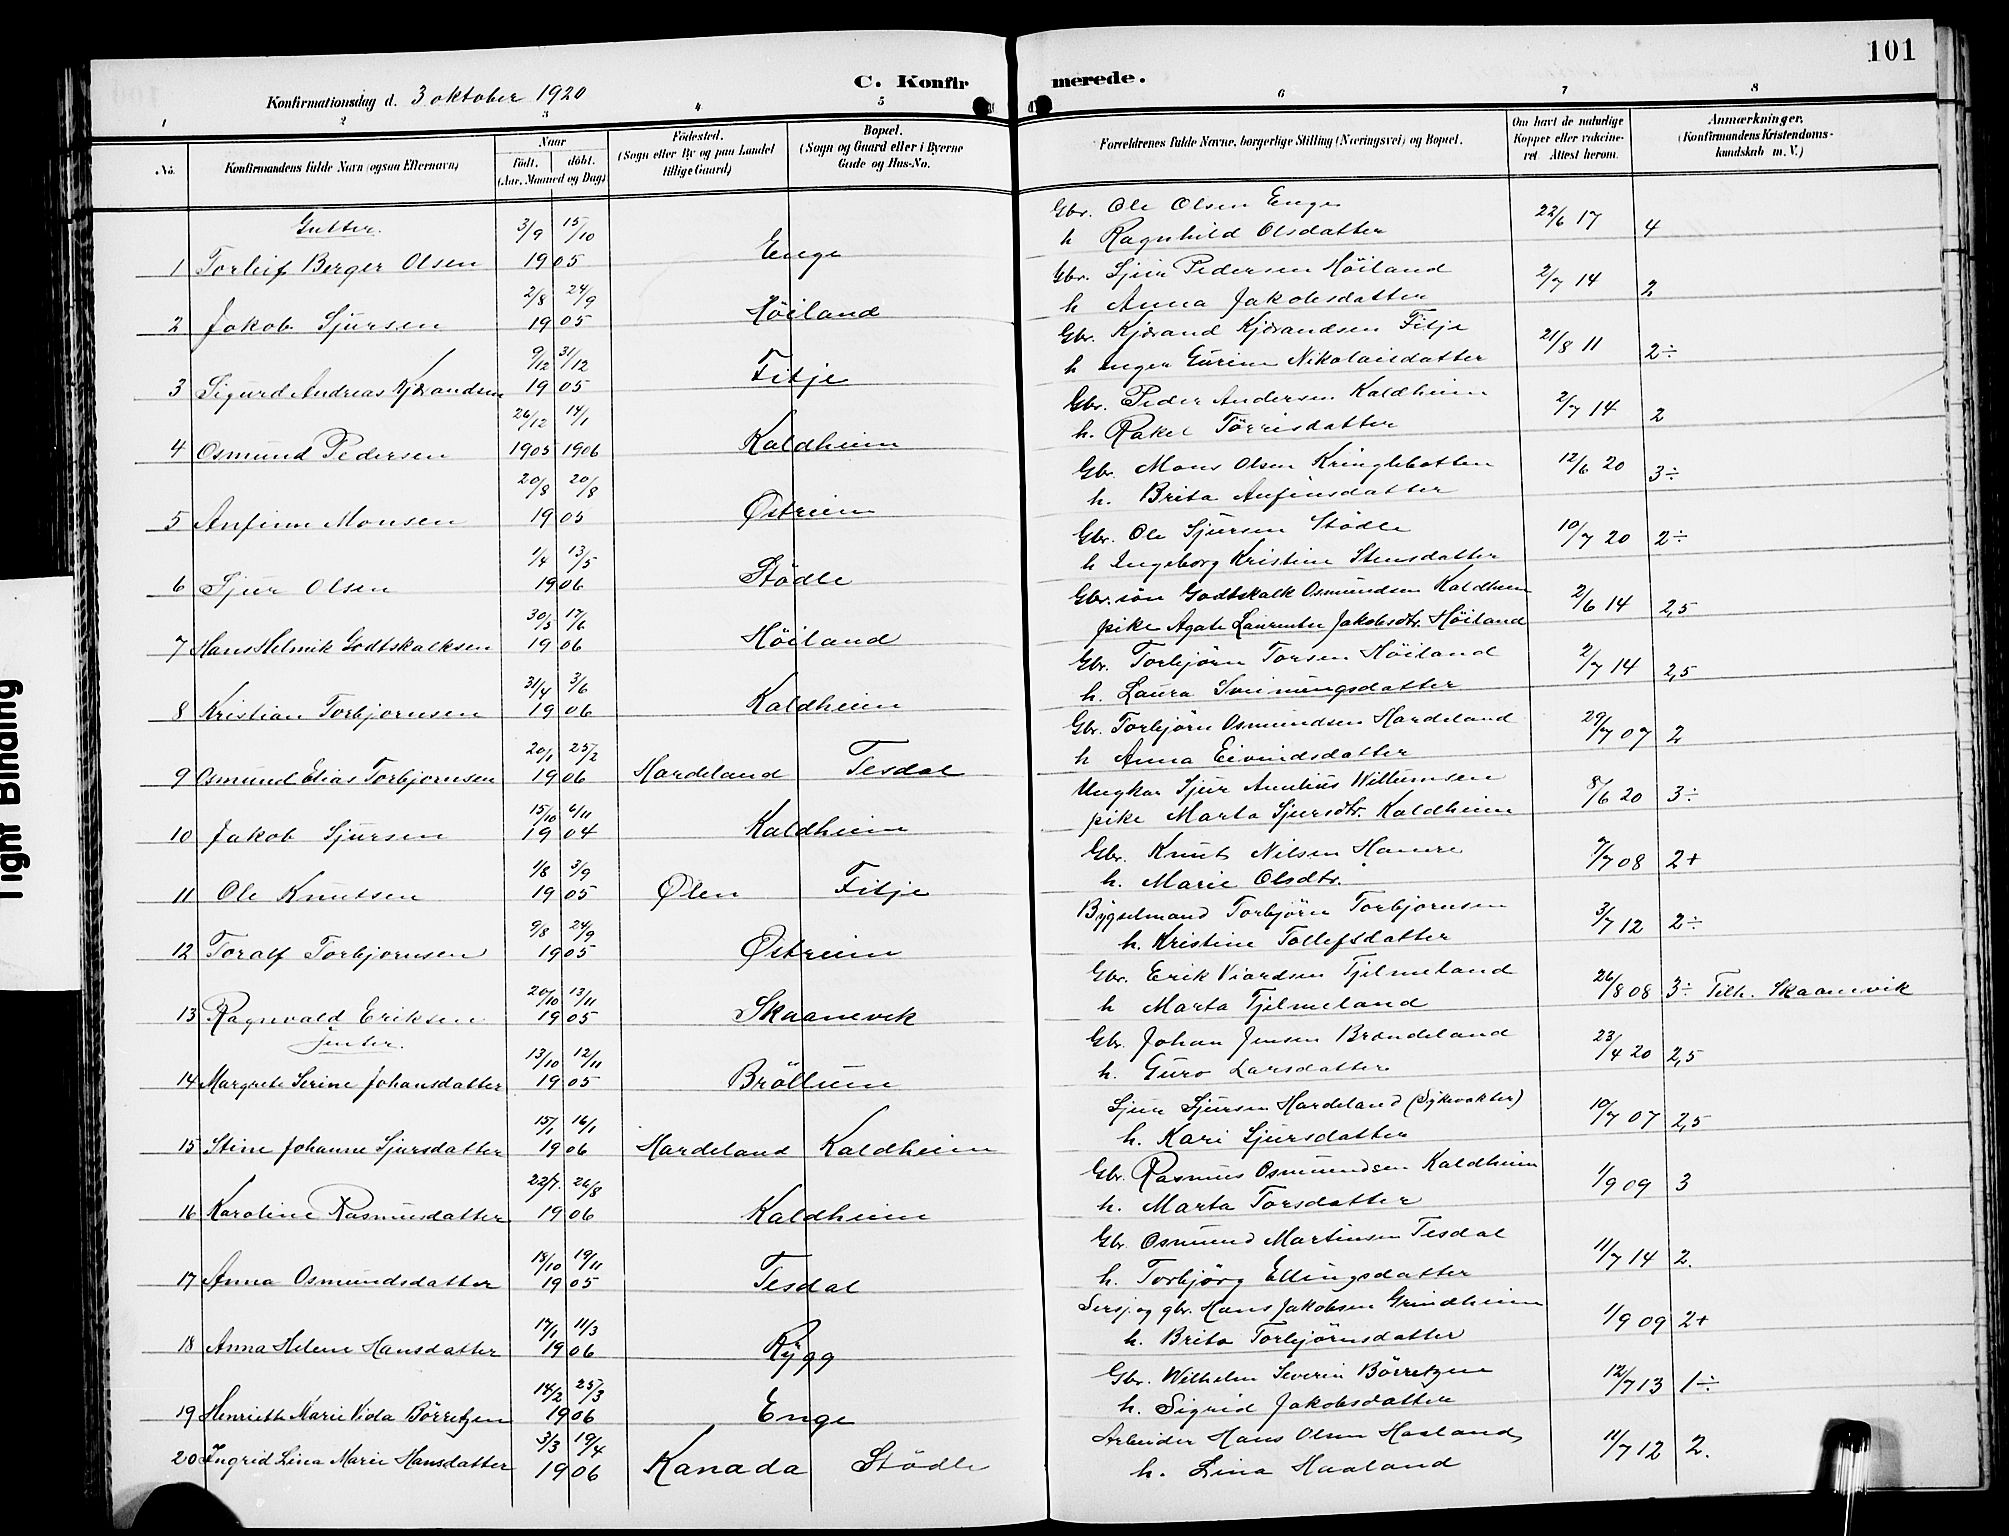 101
C. Konfirmerede.
Konfirmationsdag d. 3 oktober 1920
1 2 3 4 5 6 7 8
No.
Konfirmandens fulde Navn (ogsaa Efternavn)
Naar
født. døbt.
(Aar, Maaned og Dag)
Fødested.
(Sogn eller By og paa Landet
tillige Gaard)
Bopæl.
(Sogn og Gaard eller i Byerne
Gade og Hus-No.
Forældrenes fulde Navne, borgerlige Stilling (Næringsvei) og Bopæl.
Om havt de naturlige
Kopper eller vakcine-
ret Attest herom.
Anmærkninger.
(Konfirmandens Kristendoms-
kundskab m. V.)
Gutter.
1 Torleif Berger Olsen 3/9 15/10 1905 Enge Gbr. Ole Olsen Enge 22/6 17 4
h Ragnhild Olsdatter
2 Jakob Sjursen 2/8 24/9 1905 Høiland Gbr. Sjur Pedersen Høiland 2/7 14 2
h Anna Jakobsdatter
3 Sigurd Andreas Kjærandsen 9/12 31/12 1905 Fitje Gbr. Kjærand Kjærandsen Fitje 21/8 11 2÷
h Inger Gurine Nikolaisdatter
4 Osmund Pedersen 26/12 14/1 1905 1906 Kaldheim Gbr. Peder Andersen Kaldheim 2/7 14 2
h. Rakel Tørrisdatter
5 Anfinn Monsen 20/8 20/8 1905 Østreim Gbr. Mons Olsen Kringlebotten 12/6 20 3÷
h. Brita Anfinsdatter
6 Sjur Olsen 1/4 13/5 1906 Stødle Gbr. Ole Sjursen Stødle 10/7 20 2÷
h Ingeborg Kristine Stensdatter
7 Hans Helmik Godtskalksen 30/5 17/6 1906 Høiland Gbr. søn Godtskalk Osmundsen Kaldheim 2/6 14 2,5
pike Agate Laurentse Jakobsdtr. Høiland
8 Kristian Torbjørnsen 31/4 3/6 1906 Kaldheim Gbr. Torbjørn Torsen Høiland 2/7 14 2,5
h. Laura Sveinungsdatter
9 Osmund Elias Torbjørnsen 20/1 25/2 1906 Hardeland Tesdal Gbr. Torbjørn Osmundsen Hardeland 29/7 07 2
h Anna Eivindsdatter
10 Jakob Sjursen 15/10 6/11 1904 Kaldheim Ungkar Sjur Amelius Willumsen 8/6 20 3÷
pike Marta Sjursdtr. Kaldheim
11 Ole Knutsen 1/8 3/9 1905 Ølen Fitje Gbr. Knut Nilsen Hamre 7/7 08 2+
h. Marie Olsdtr.
12 Toralf Torbjørnsen 9/8 24/9 1905 Østreim Bygselmand Torbjørn Torbjørnsen 3/7 12 2÷
h. Kristine Tollefsdatter
13 Ragnvald Eriksen 20/10 13/11 1905 Skaanevik Gbr. Erik Viardsen Fjelmeland 26/8 08 3÷ Tilh. Skaanevik
h Marta Fjelmeland
Jenter.
14 Margrete Serine Johansdatter 13/10 12/11 1905 Brøllum Gbr. Johan Jensen Brandeland 23/4 20 2,5
h. Guro Larsdatter
15 Stine Johanne Sjursdatter 15/1 16/1 1906 Hardeland Kaldheim Sjur Sjursen Hardeland (Sykevokter) 10/7 07 2,5
h. Kari Sjursdatter
16 Karoline Rasmusdatter 22/7. 26/8 1906 Kaldheim Gbr. Rasmus Osmundsen Kaldheim 1/9 09 3
h. Marta Torsdatter
17 Anna Osmundsdatter 18/10 19/11 1905 Tesdal Gbr. Osmund Martinsen Tesdal 11/7 14 2.
h. Torbjørg Ellingsdatter
18 Anna Helene Hansdatter 17/1 11/3 1906 Rygg Sersj. og gbr. Hans Jakobsen Grindheim 1/9 09 2+
h. Brita Torbjørnsdatter
19 Henriette Marie Vida Børretzen 14/2 25/3 1906 Enge Gbr. Wilhelm Severin Børretzen 12/7 13 1÷
h. Sigrid Jakobsdatter
20 Ingrid Lina Marie Hansdatter 3/3 19/4 1906 Kanada Stødle Arbeider Hans Olsen Haaland 11/7 12 2.
h. Lina Haaland
Tight Binding